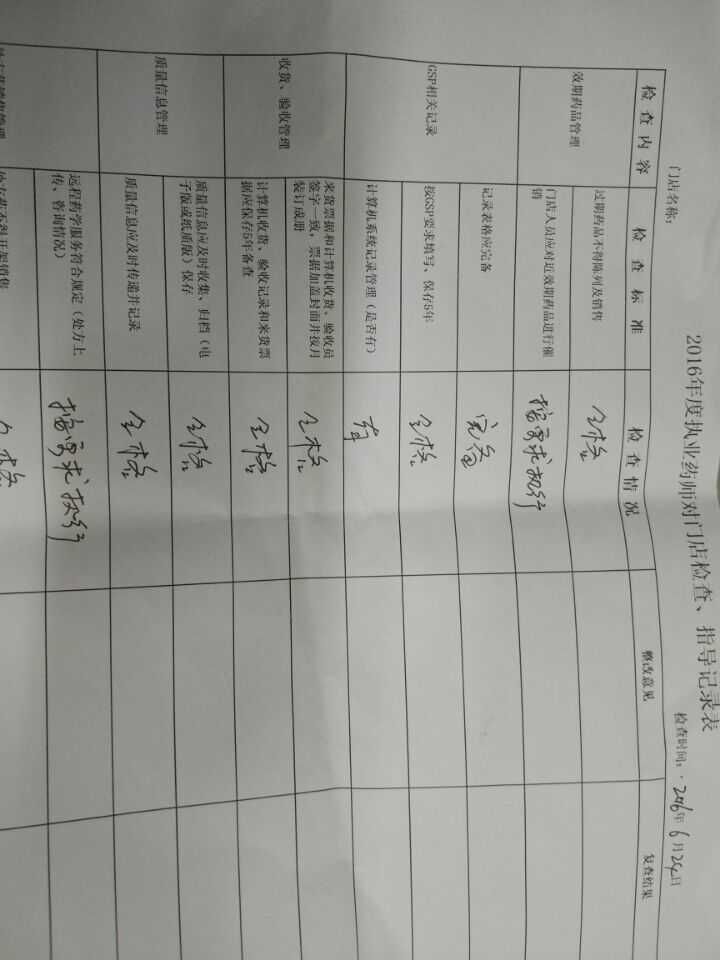 2016年度执业药师对门店检查、指导记录表
门店名称：
检查时间：2016年6月24日
检查内容 检查标准 检查情况 整改意见 复查结果
效期药品管理
过期药品不得陈列及销售 合格
门店人员应对近效期药品进行催
销
按要求执行
GSP相关记录
记录表格应完备 完备
按GSP要求填写、保存5年 合格
计算机系统记录管理（是否有） 有
收货、验收管理
来货票据和计算机收货、验收员
签字一致，票据加盖封面并按月
装订成册
合格
计算机收货、验收记录和来货票
据应保存5年备查
合格
质量信息管理
质量信息应及时收集、归档（电
子版或纸质版）保存
合格
质量信息应及时传递并记录 合格
远程药学服务符合规定（处方上
传、咨询情况）
按要求执行
处方药不得开架销售
合格